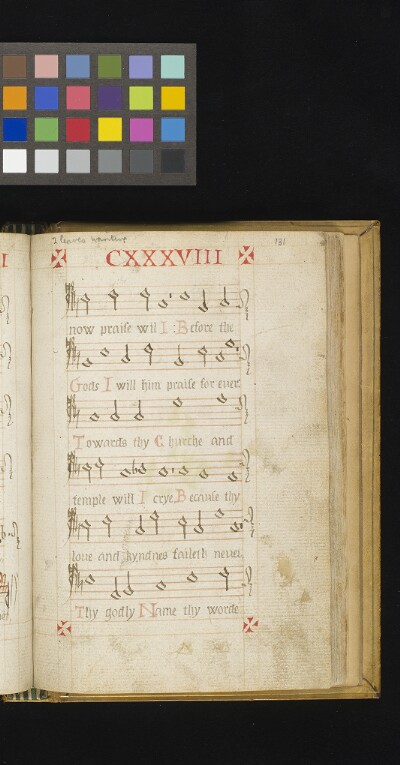 2 leaves wanting
131
I
CXXXVIII
now praise will I : Before the
Gods I will him praise for ever.
Towards thy Churche and
temple will I crye, Because thy
love and kyndnes faileth never
Thy godly Name thy worde